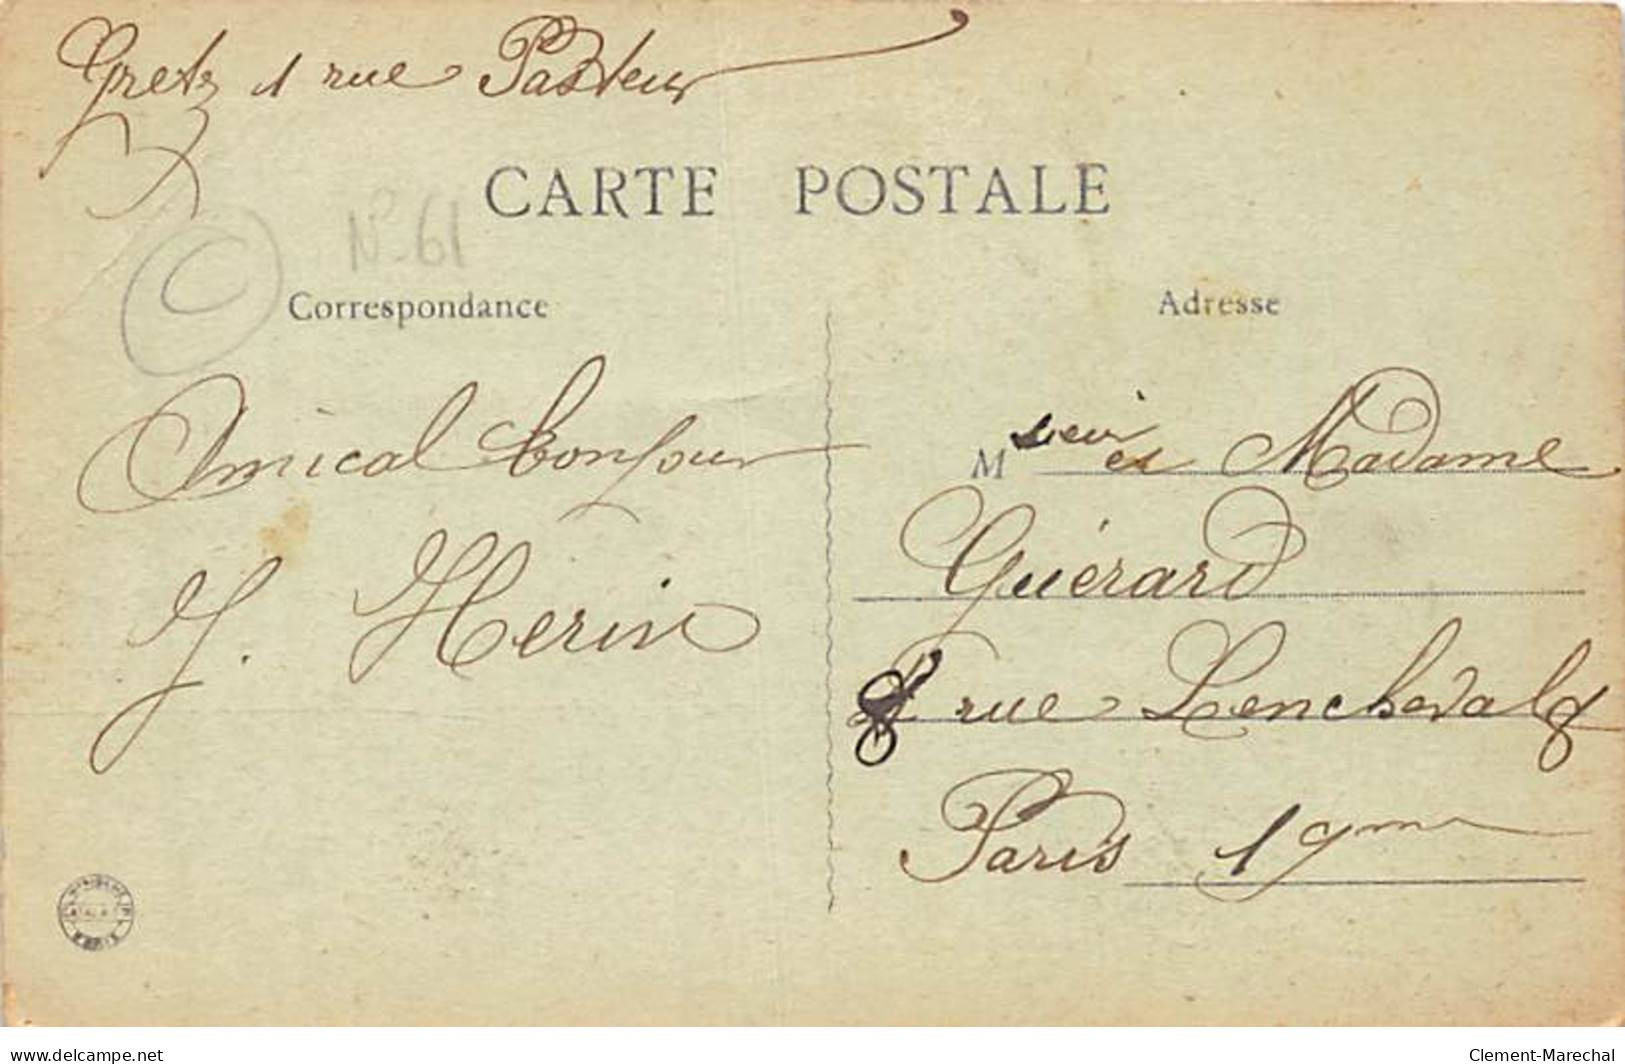 Gretz 1 rue Pasteur
CARTE POSTALE
C
N° 61
Correspondance
Amical bonjour
J. Herin
Adresse
Msieur et Madame
Guérard
rue
Paris 19me
delcampe.net
Clement-Marechal